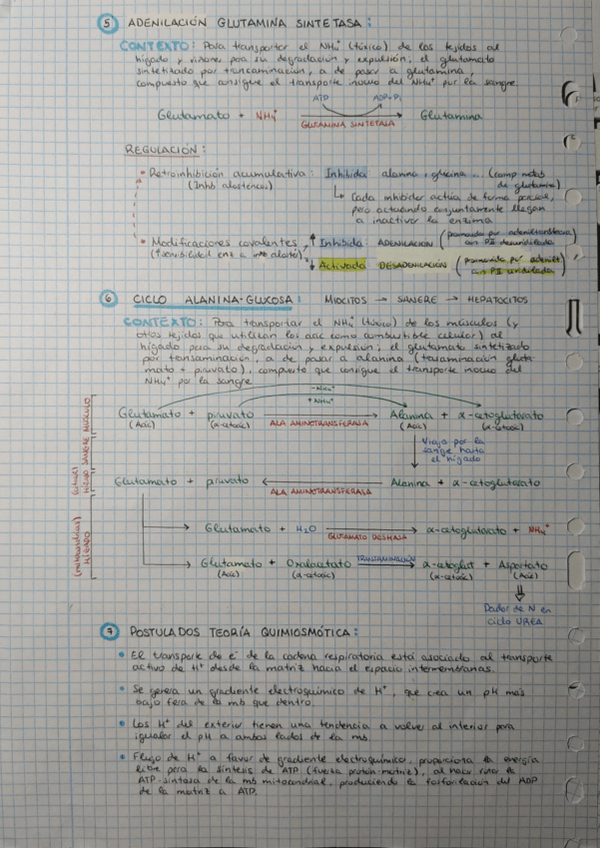 5 ADENILACIÓN GLUTAMINA SINTETASA:
CONTEXTO: Para transportar el NH4+ (tóxico) de los tejidos al
hígado y riñones para su degradación y expulsión, el glutamato
sintetizado por transaminación, a de pasar a glutamina,
compuesto que consigue el transporte inocuo del NH4+ por la sangre.
ATP ADP+Pi
Glutamato + NH4+ → Glutamina
GLUTAMINA SINTETASA
REGULACIÓN:
• Retroinhibición acumulativa: Inhibida alanina, glicina... (comp metab
(Inhib alostérica) de glutamina)
↳ Cada inhibidor actúa de forma parcial,
pero actuando conjuntamente llegan
a inactivar la enzima
• Modificaciones covalentes ↑ Inhibida: ADENILACIÓN (promovida por adeniltransferasa
(↑sensibilidad enz a inhib alosté) con PII desuridilada)
↓ Activada DESADENILACIÓN (promovida por adenilt
con PII uridilada)
6 CICLO ALANINA-GLUCOSA: MIOCITOS → SANGRE → HEPATOCITOS
CONTEXTO: Para transportar el NH4+ (tóxico) de los músculos (y
otros tejidos que utilizan los aac como combustible celular) al
hígado para su degradación y expulsión, el glutamato sintetizado
por transaminación, a de pasar a alanina (transaminación gluta-
mato + piruvato), compuesto que consigue el transporte inocuo del
NH4+ por la sangre
-NH4+
+NH4+
Glutamato + piruvato → Alanina + α-cetoglutarato
(Aa1) (α-cetoác) ALA AMINOTRANSFERASA (Aa2) (α-cetoác)
MÚSCULO
SANGRE
Viaja por la
sangre hasta
el hígado
HÍGADO
Glutamato + piruvato ← Alanina + α-cetoglutarato
ALA AMINOTRANSFERASA
HÍGADO
(mitocondrias)
Glutamato + H2O → α-cetoglutarato + NH4+
GLUTAMATO DESHASA
Glutamato + Oxalacetato TRANSAMINACIÓN α-cetoglut + Aspartato
(Aa1) (α-cetoác) (α-cetoác) (Aa2)
Dador de N en
ciclo UREA
7 POSTULADOS TEORÍA QUIMIOSMÓTICA:
• El transporte de e- de la cadena respiratoria está asociado al transporte
activo de H+ desde la matriz hacia el espacio intermembranas.
• Se genera un gradiente electroquímico de H+, que crea un pH más
bajo fuera de la mb que dentro.
• Los H+ del exterior tienen una tendencia a volver al interior para
igualar el pH a ambos lados de la mb
• Flujo de H+ a favor de gradiente electroquímico, proporciona la energía
libre para la síntesis de ATP (fuerza protón-motriz), al hacer rotar la
ATP-sintasa de la mb mitocondrial, produciendo la fosforilación del ADP
de la matriz a ATP.